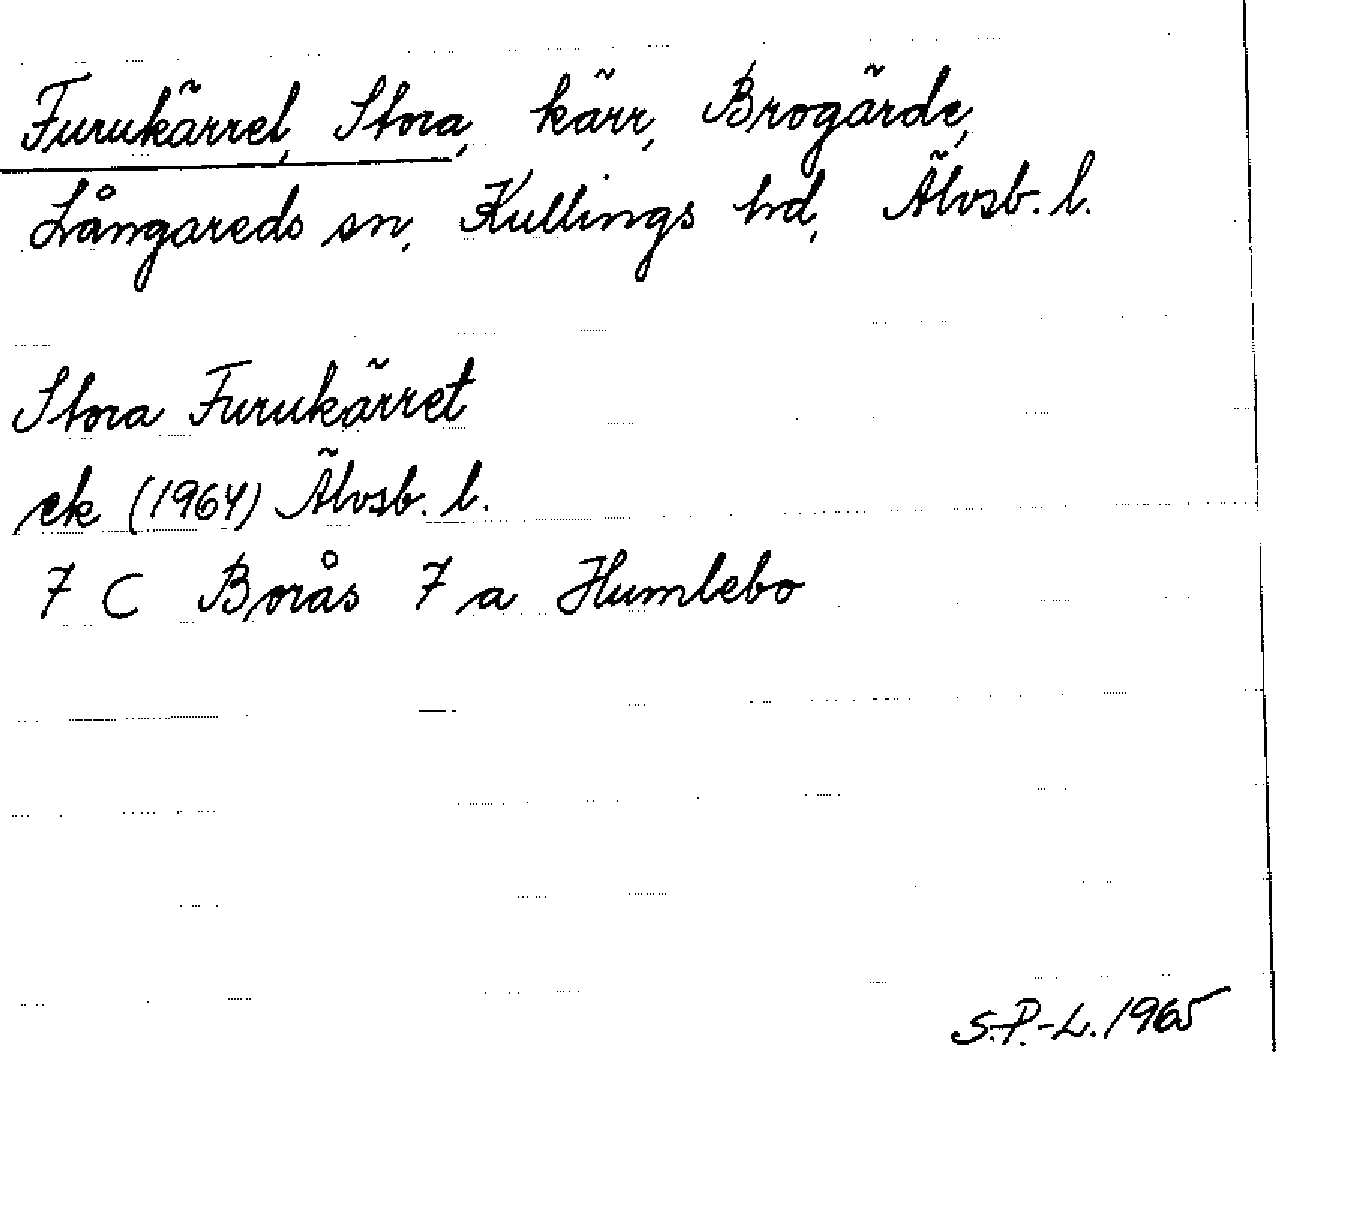 Furukärret, Stora, kärr, Brogärde,
Långareds sn, Kullings hd, Älvsb. l.
Stora Furukärret
ek (1964) Älvsb. l.
7 C Borås 7 a Humlebo
S.P.-L. 1965